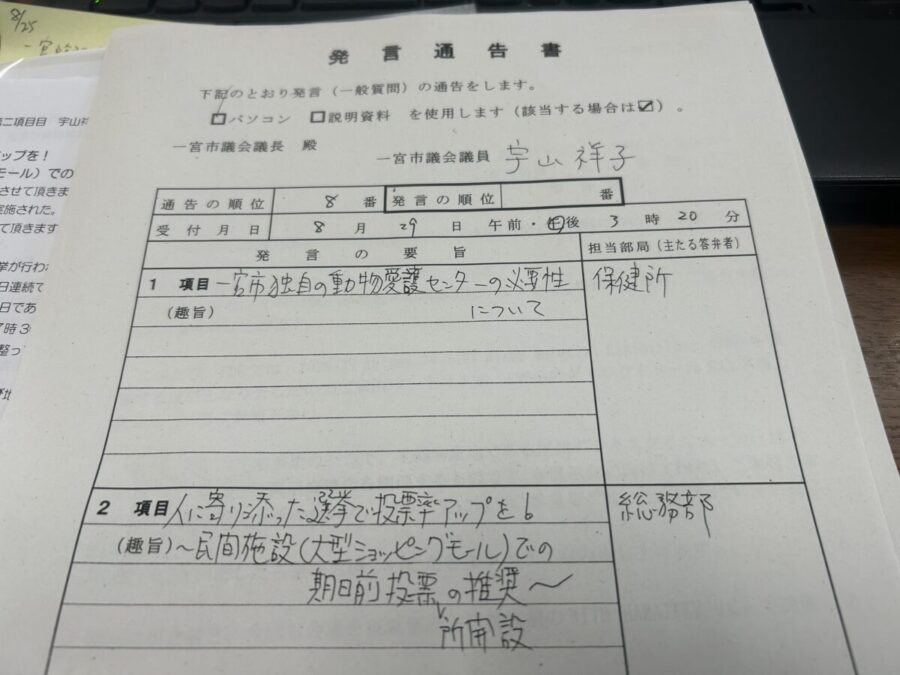 8/25
発言通告書
下記のとおり発言（一般質問）の通告をします。
☐パソコン ☐説明資料 を使用します（該当する場合は☑）。
一宮市議会議長 殿
一宮市議会議員 宇山祥子
通告の順位 8 番 発言の順位 番
受付月日 8 月 29 日 午前・午後 3 時 20 分
発言の要旨 担当部局（主たる答弁者）
1 項目 一宮市独自の動物愛護センターの必要性 保健所
（趣旨） について
2 項目 人に寄り添った選挙で投票率アップを！ 総務部
（趣旨） ～民間施設（大型ショッピングモール）での
期日前投票の推奨～
所開設
二項目目 宇山祥
ップを！
モール）での
させて頂きま
実施された。
て頂きます
挙が行わ
日連続で
日であ
7時3
整っ